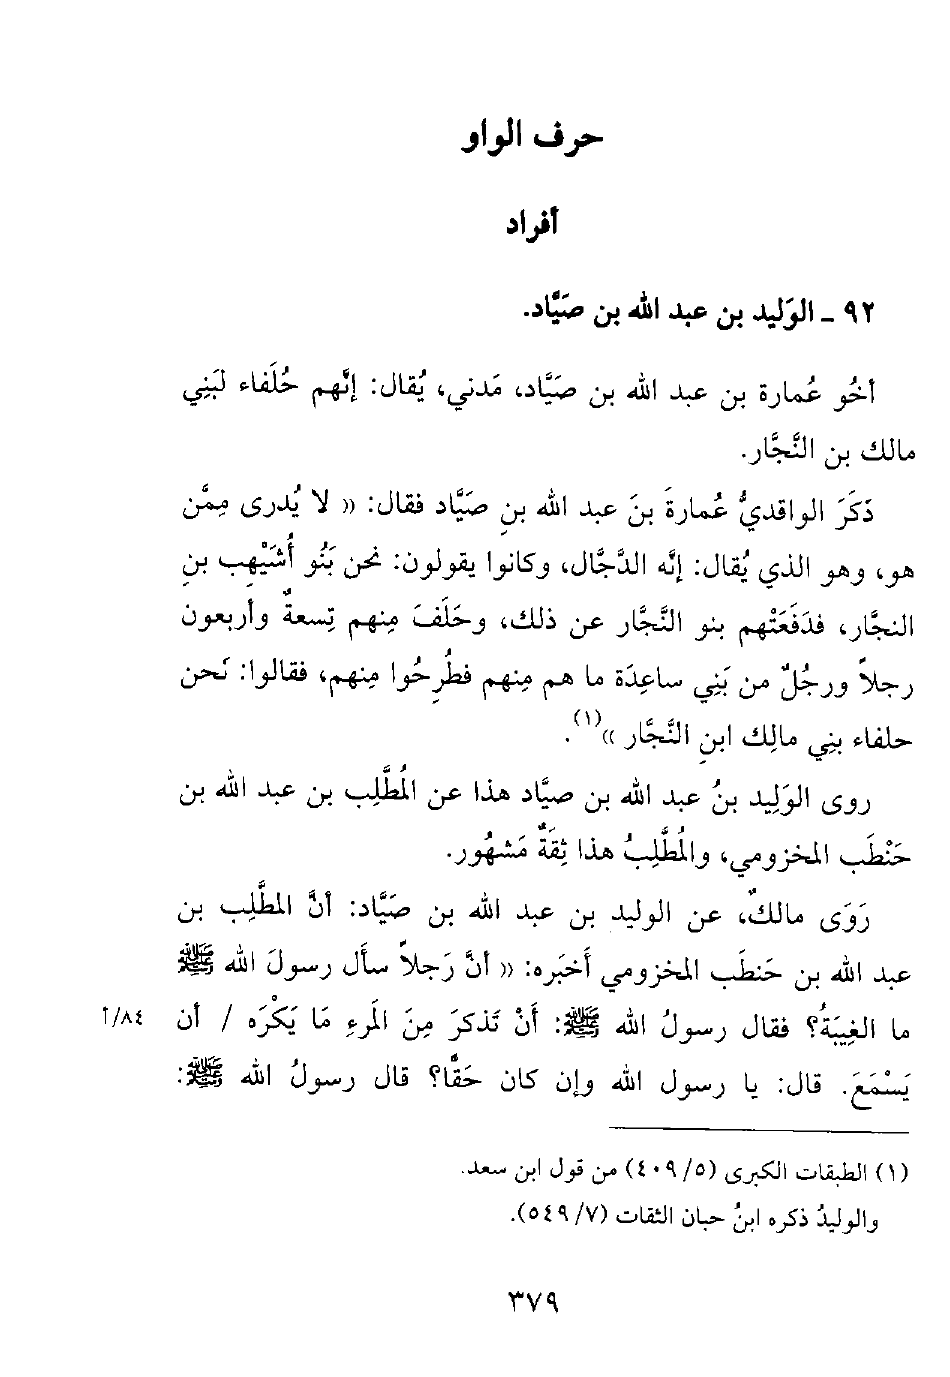 حرف الواو
أفراد
٩٢ ـ الوَليد بن عبد الله بن صَيَّاد.
أخُو عُمارة بن عبد الله بن صَيَّاد، مَدني، يُقال: إنَّهم حُلَفاء لبَنِي
مالك بن النَّجَّار.
ذَكَرَ الواقديُّ عُمارةَ بنَ عبد الله بنِ صَيَّاد فقال: « لا يُدرى مِمَّن
هو، وهو الذي يُقال: إنَّه الدَّجَّال، وكانوا يقولون: نحن بَنُو أُشَيْهِب بنِ
النجَّار، فدَفَعَتْهم بنو النَّجَّار عن ذلك، وحَلَفَ مِنهم تِسعةٌ وأربعون
رجلاً ورجُلٌ من بَنِي ساعِدَة ما هم مِنهم فطُرِحُوا مِنهم، فقالوا: نَحن
حلفاء بنِي مالِك ابنِ النَّجَّار »(١).
روى الوَلِيد بنُ عبد الله بن صيَّاد هذا عن المُطَّلِب بن عبد الله بن
حَنْطَب المخزومي، والمُطَّلِبُ هذا ثِقَةٌ مَشهُور.
رَوَى مالكٌ، عن الوليد بن عبد الله بن صَيَّاد: أنَّ المطَّلِب بن
عبد الله بن حَنطَب المخزومي أَخبَره: « أنَّ رَجلاً سأَل رسولَ الله ﷺ
ما الغِيبَةُ؟ فقال رسولُ الله ﷺ: أَنْ تَذكرَ مِنَ المَرءِ مَا يَكْرَه / أن ٨٤/أ
يَسْمَعَ. قال: يا رسول الله وإن كان حَقًّا؟ قال رسولُ الله ﷺ:
(١) الطبقات الكبرى (٤٠٩/٥) من قول ابن سعد.
والوليدُ ذكره ابنُ حبان الثقات (٥٤٩/٧).
٣٧٩